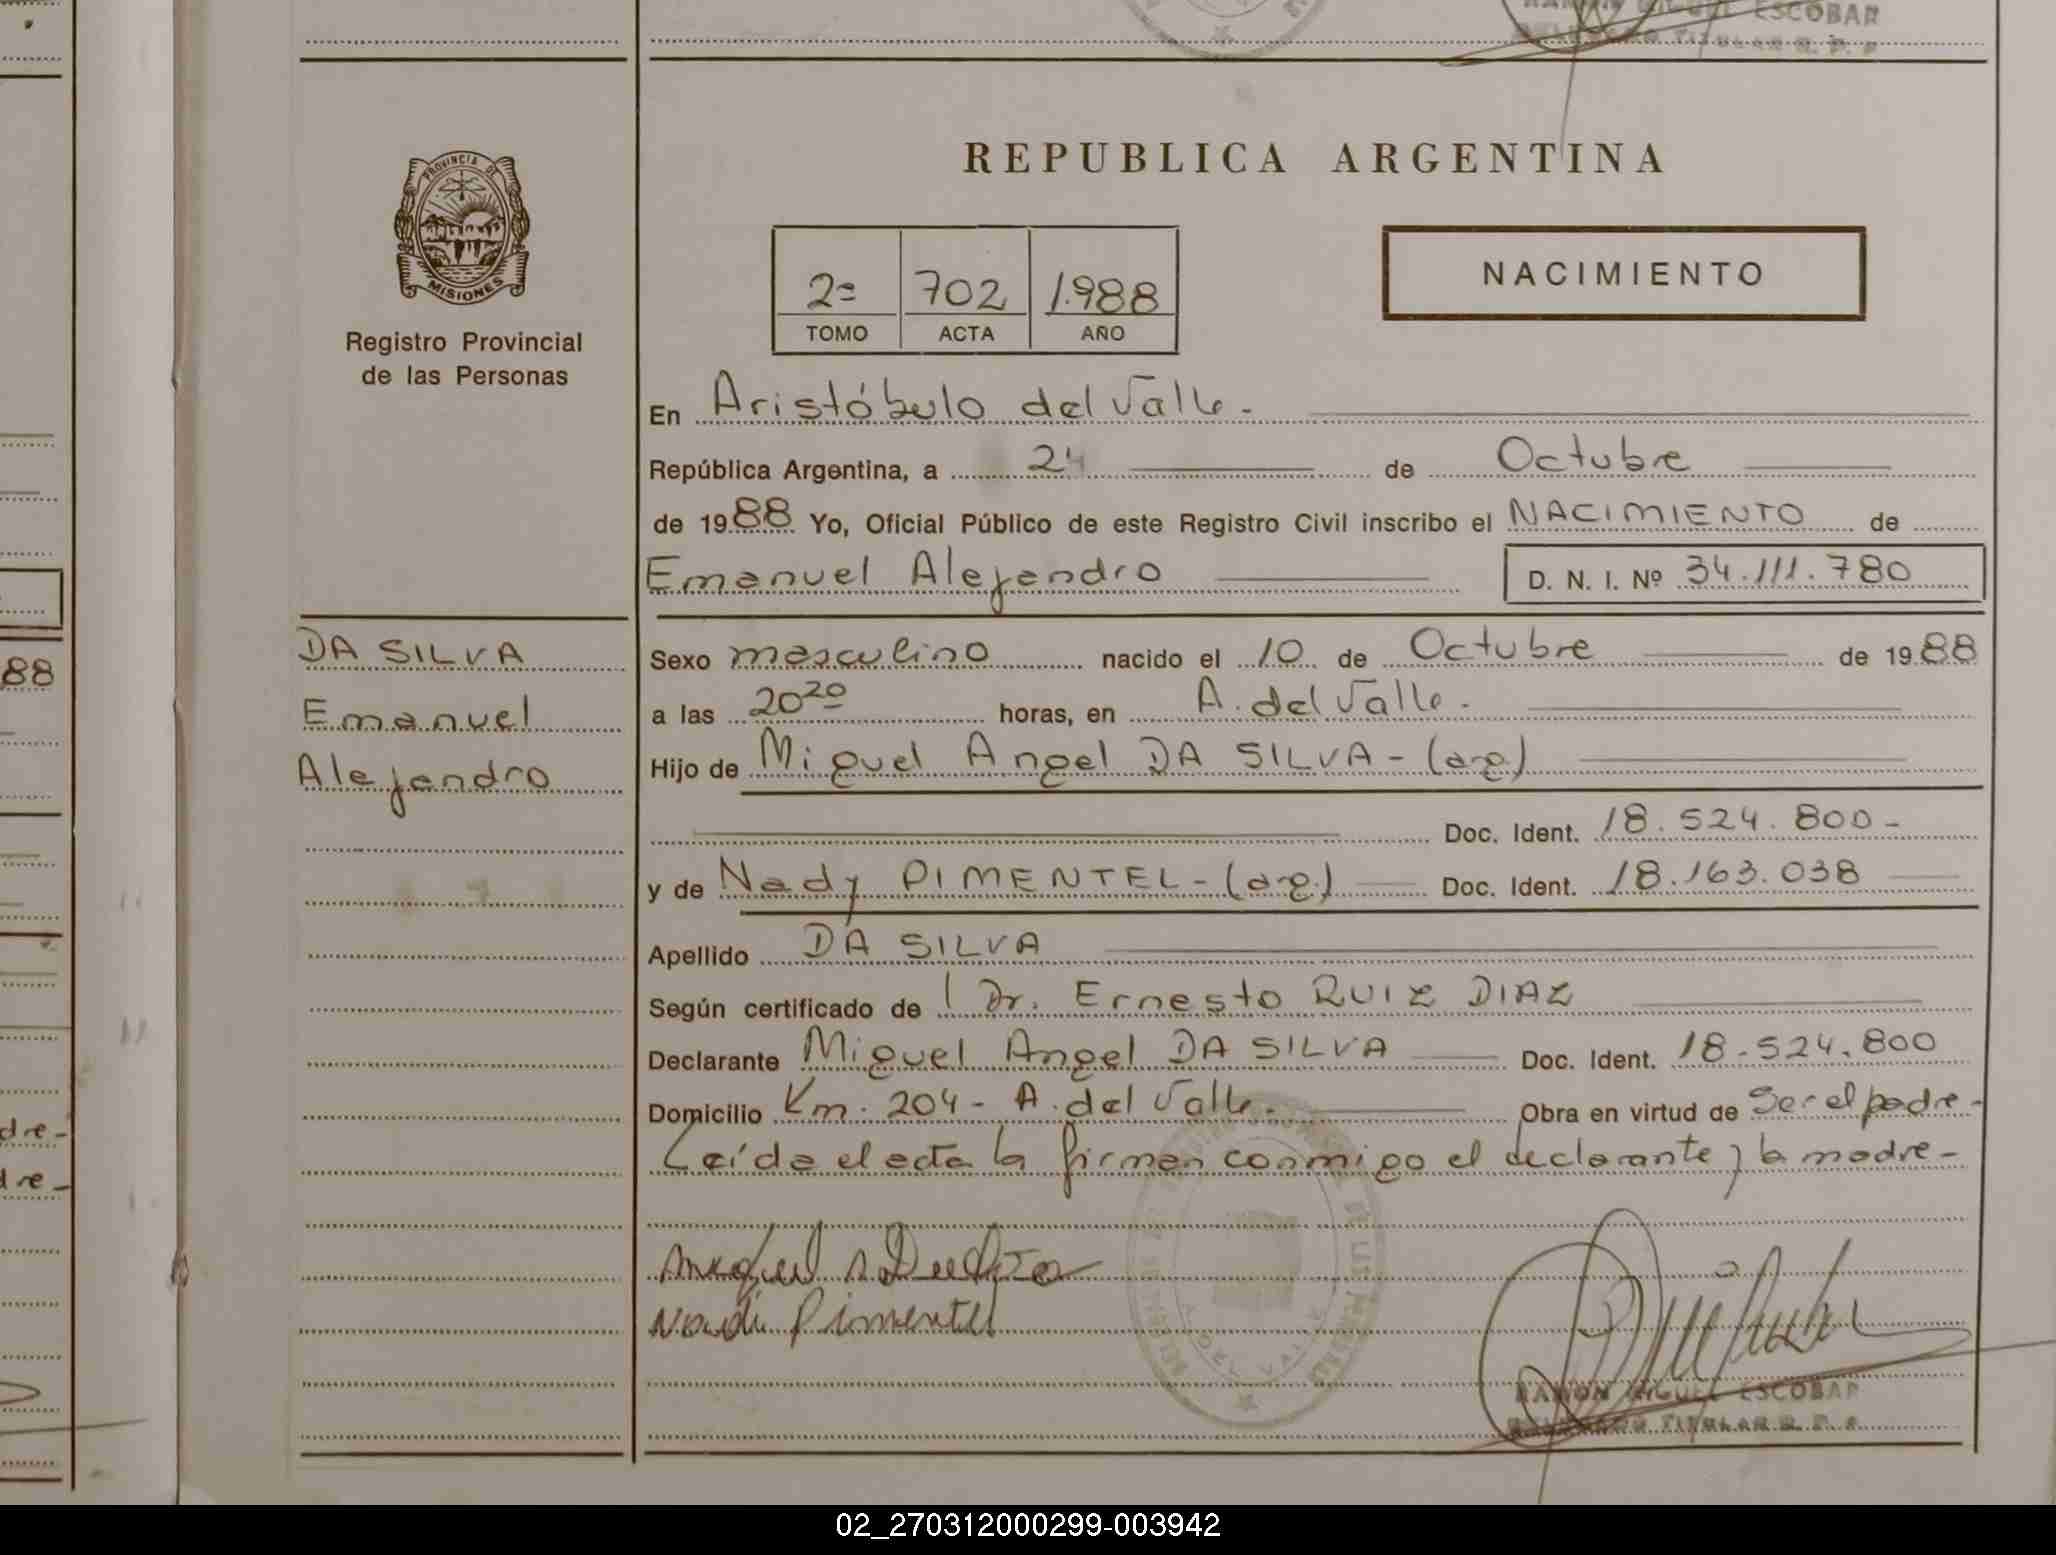 RAMON MIGUEL ESCOBAR
REPUBLICA ARGENTINA
PROVINCIA DE
MISIONES
Registro Provincial
de las Personas
NACIMIENTO
2º 702 1.988
TOMO ACTA AÑO
En Aristóbulo del Valle.-
República Argentina, a 24 de Octubre
de 1988 Yo, Oficial Público de este Registro Civil inscribo el NACIMIENTO de
Emanuel Alejandro D. N. I. Nº 34.111.780
DA SILVA
Emanuel
Alejandro
Sexo masculino nacido el 10 de Octubre de 1988
a las 20 20 horas, en A. del Valle.-
Hijo de Miguel Angel DA SILVA - (arg)
Doc. Ident. 18.524.800-
y de Nady PIMENTEL - (arg.) Doc. Ident. 18.163.038
Apellido DA SILVA
Según certificado de l Dr. Ernesto RUIZ DIAZ
Declarante Miguel Angel DA SILVA Doc. Ident. 18.524.800
Domicilio Km. 204 - A. del Valle.- Obra en virtud de Ser el padre-
Leída el acta la firman conmigo el declarante y la madre-
Nardi Pimentel
A. DEL VALLE
RAMON MIGUEL ESCOBAR
88
dre-
dre-
02_270312000299-003942